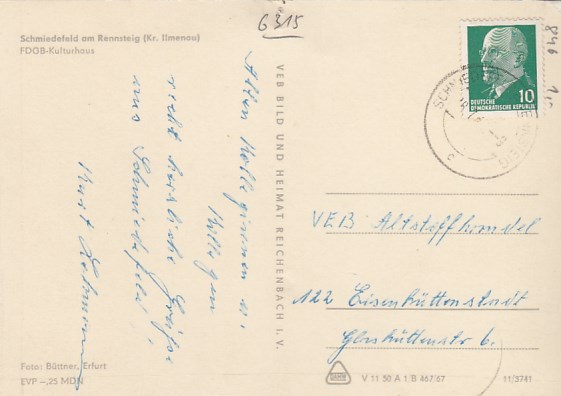 6315
Schmiedefeld am Rennsteig (Kr. Ilmenau)
FDGB-Kulturhaus
Allen Kolleginnen u.
Kollegen
recht herzliche Grüße
aus Schmiedefeld
Kurt
VEB BILD UND HEIMAT REICHENBACH I. V.
10
DEUTSCHE
DEMOKRATISCHE REPUBLIK
VEB Altstoffhandel
122 Eisenhüttenstadt
Glashüttenstr 6.
Foto: Büttner, Erfurt
EVP –,25 MDN
V 11 50 A 1/B 467/67
11/3741